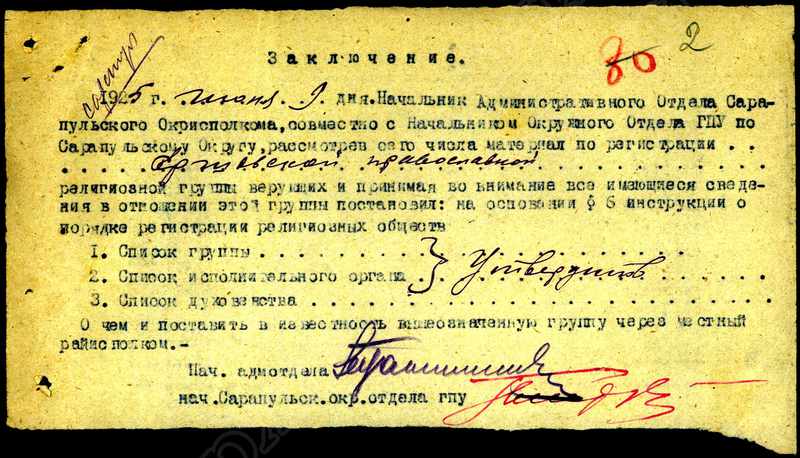 2
80
Заключение.
1925 г. июня 9 дня.Начальник Административного Отдела Сара-
пульского Окрисполкома,совместно с Начальником Окружного Отдела ГПУ по
Сарапульскому Округу,рассмотрев сего числа материал по регистрации . .
православной
религиозной группы верующих и принимая во внимание все имеющиеся сведе-
ния в отношении этой группы постановил: на основании ф 6 инструкции о
порядке регистрации религиозных обществ
1. Список группы . . . . . . . . . . . . . . . . . . . . .
2. Список исполнительного органа } Утвердить
3. Список духовенства . . . . . . . . . . . . . . . . . . . . . . . .
О чем и поставить в известность вышеозначенную группу через местный
райисполком.-
Нач. адмотдела
нач.Сарапульск.окр.отдела гпу